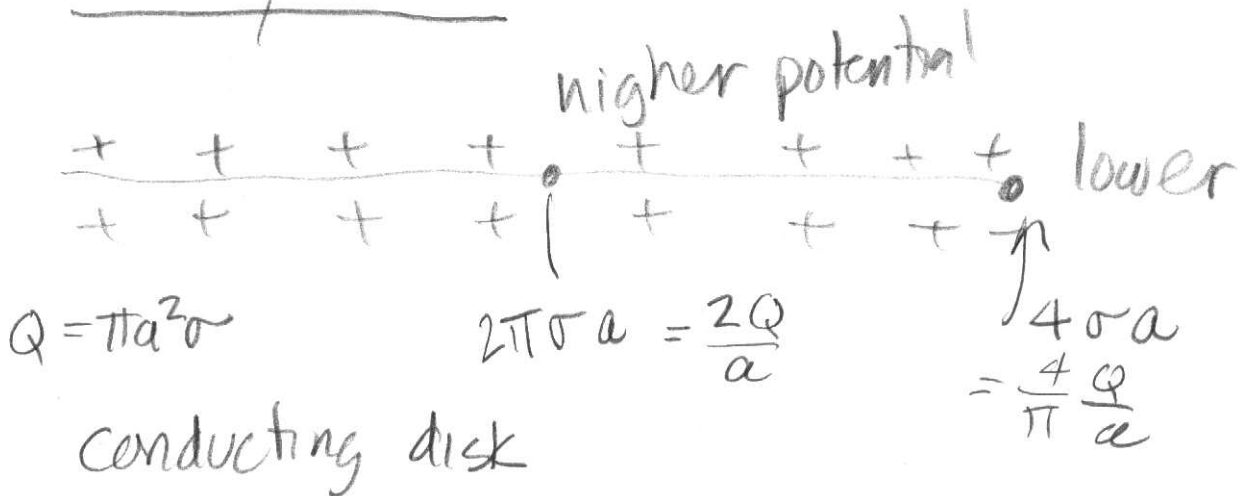 higher potential
+ + + + + + + + lower
+ + + + + + + +
Q = πa²σ
2πσa = 2Q/a
4σa
= 4/π Q/a
conducting disk